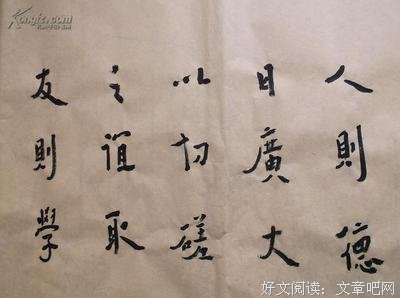 人則德
日廣大
以切磋
之誼取
友則學
好文阅读：文章吧网